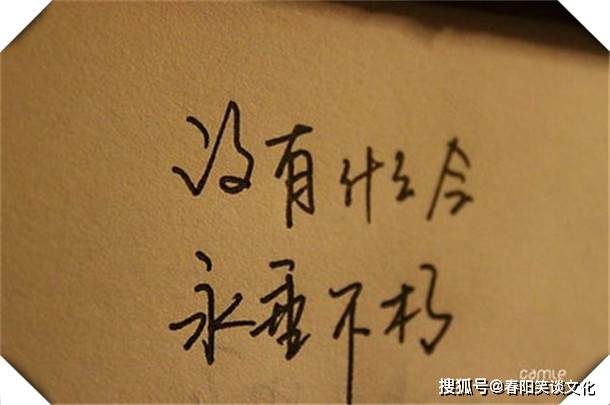 没有什么会
永垂不朽
camle
搜狐号@春阳笑谈文化